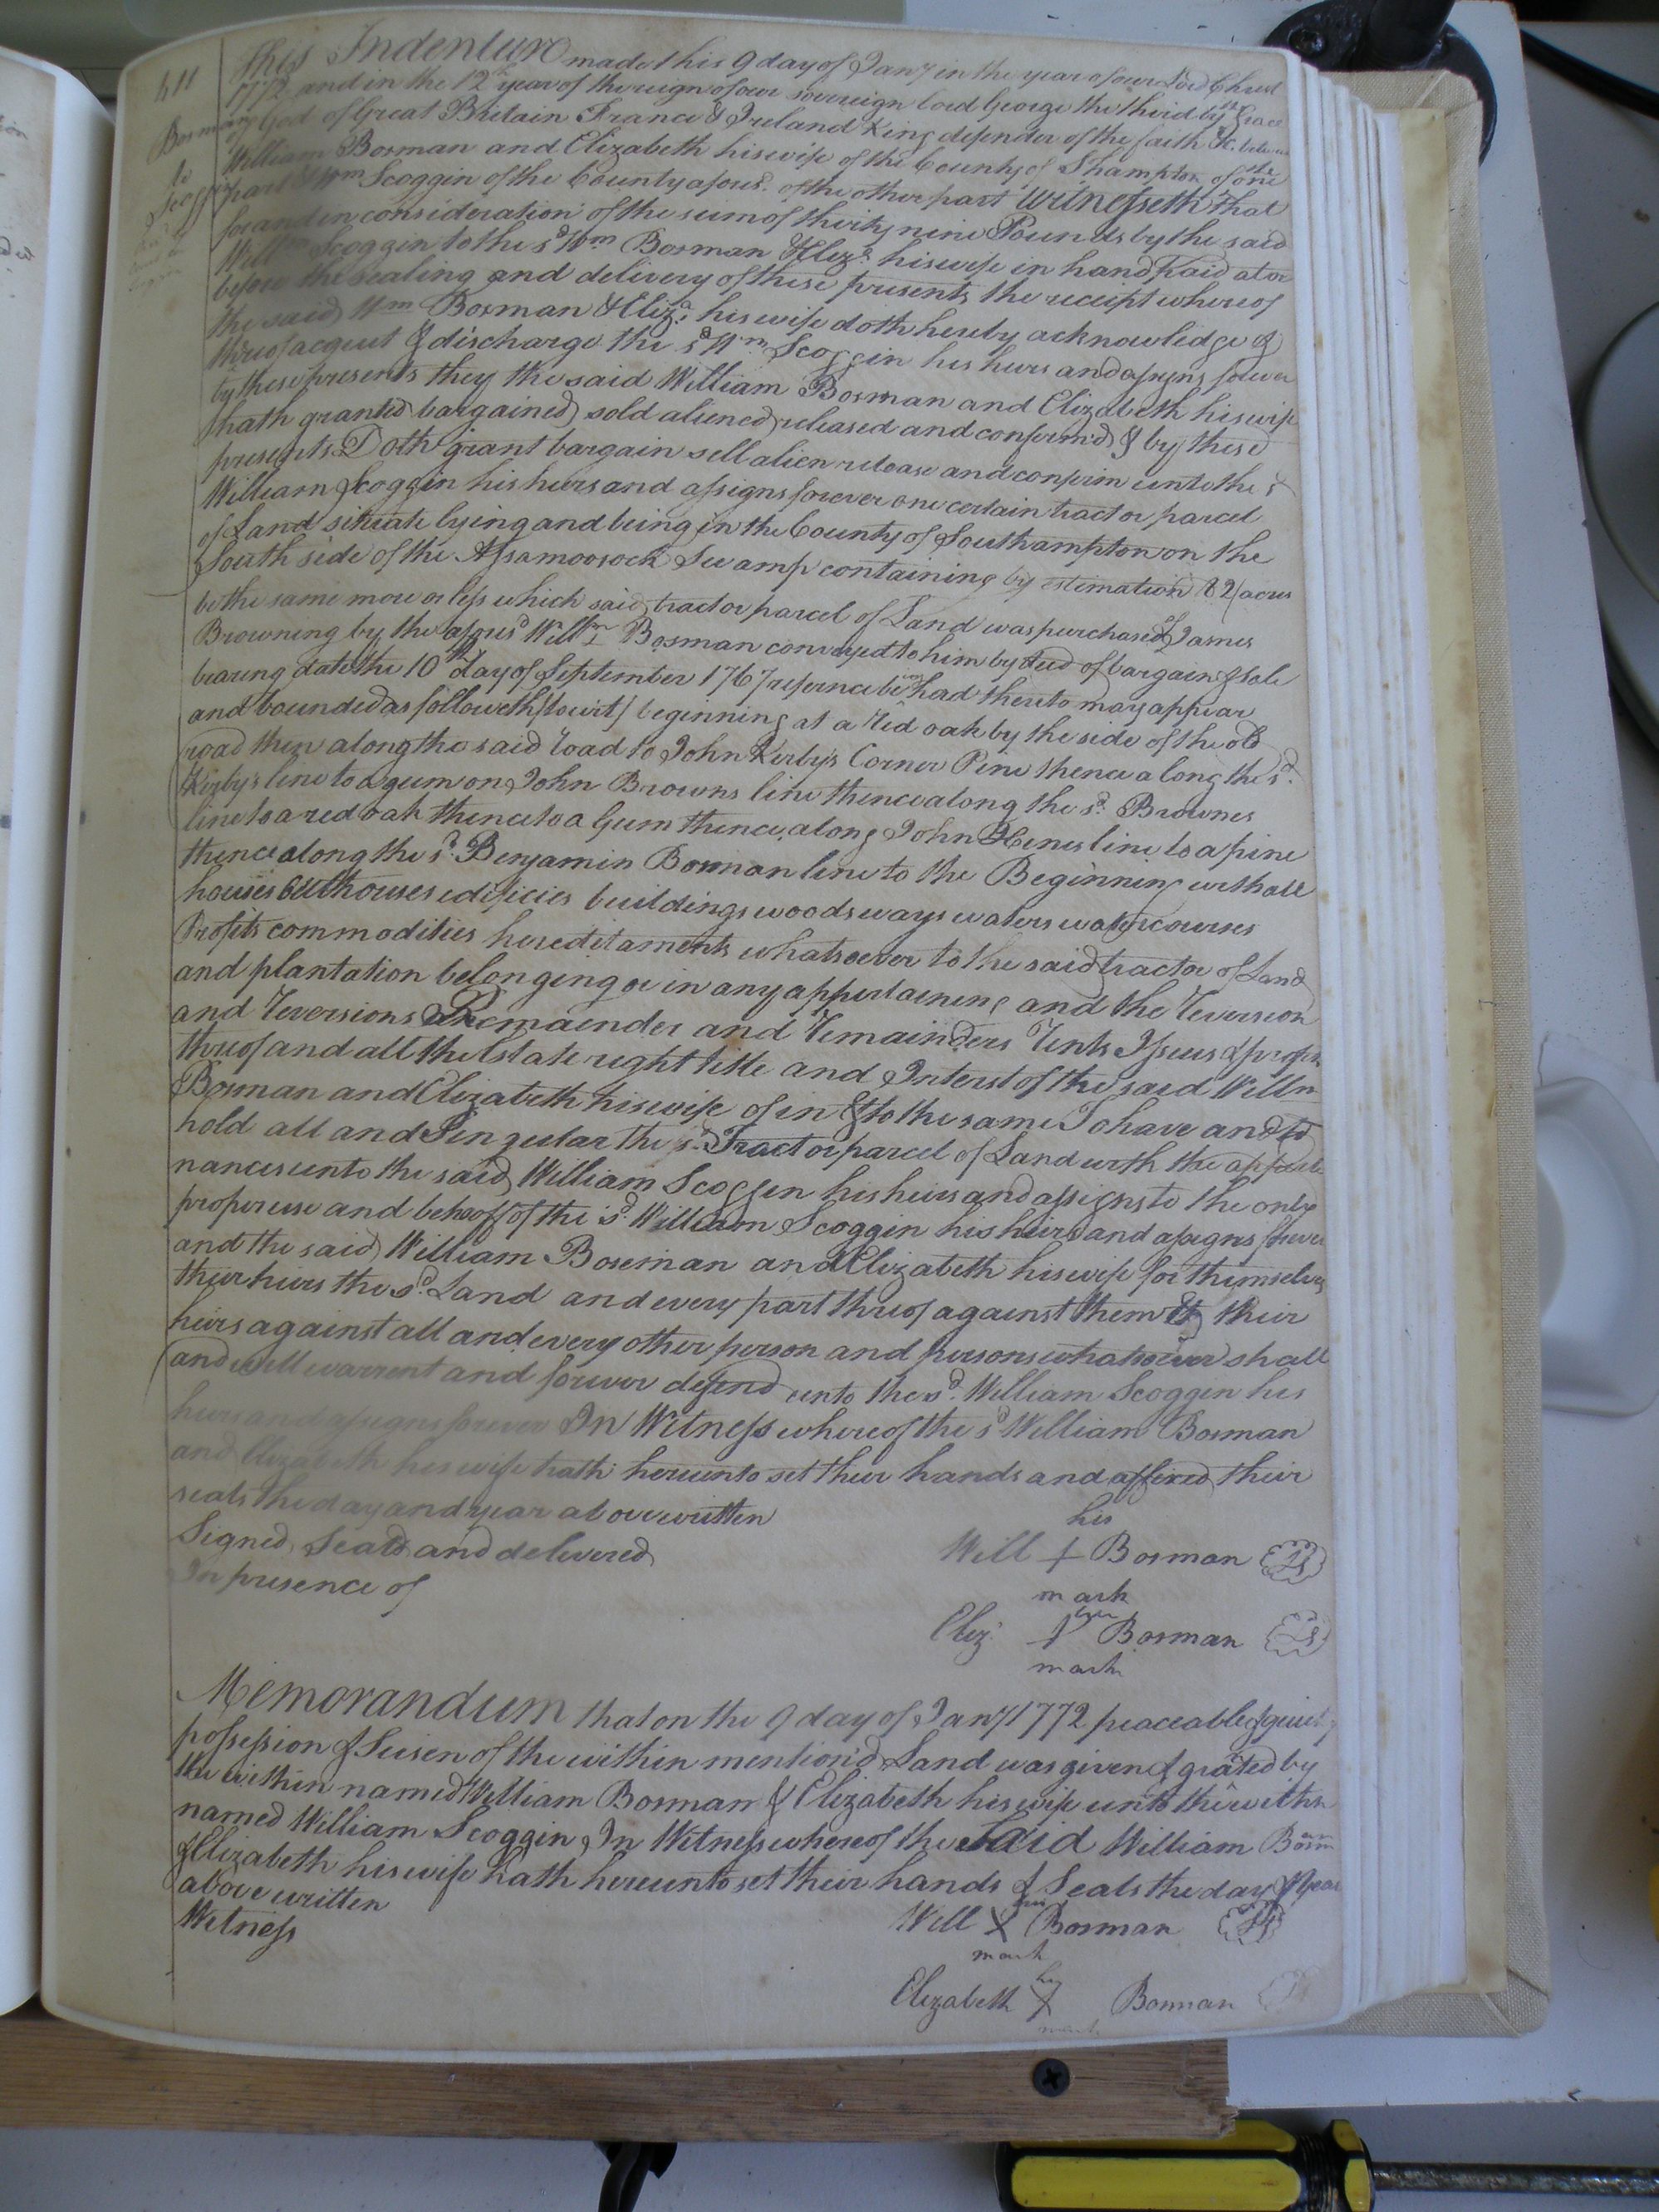 411
This Indenture made this 9 day of Jany in the year of our Lord Christ
1772 and in the 12th year of the reign of our sovereign lord George the third by the Grace
Bosman of God of Great Britain France & Ireland King defender of the faith &c. between
to William Bosman and Elizabeth his wife of the County of Shampton of the one
Scoggin part & Wm Scoggin of the County aforesd. of the other part Witnesseth that
for and in consideration of the sum of thirty nine Pounds by the said
Willm Scoggin to the sd Wm Bosman & Eliza. his wife in hand paid at or
before the sealing and delivery of these presents the receipt whereof
the said Wm Bosman & Eliza. his wife doth hereby acknowledge &
thereof acquit & discharge the sd Wm. Scoggin his heirs and assigns forever
by these presents they the said William Bosman and Elizabeth his wife
hath granted bargained sold aliened released and confirmd & by these
presents Doth grant bargain sell alien release and confirm unto the sd
William Scoggin his heirs and assigns forever one certain tract or parcel
of Land situate lying and being in the County of Southampton on the
South side of the Assamoosock Swamp containing by estimation 82 acres
be the same more or less which said tract or parcel of Land was purchased of James
Browning by the aforesd Willm Bosman conveyed to him by deed of bargain & sale
bearing date the 10th day of September 1767 refernce being had thereto may appear
and bounded as followeth (towit) beginning at a red oak by the side of the old
road then along the said road to John Kirby's Corner Pine thence along the sd.
Kirby's line to a gum on John Browns line thence along the sd. Brownes
line to a red oak thence to a Gum thence along John Hines line to a pine
thence along the sd. Benjamin Bosman line to the Beginning with all
houses outhouses edificies buildings woods ways waters watercourses
Profits commodities hereditaments whatsoever to the said tract or of Land
and plantation belonging or in any appertaining and the reversion
and reversions Remainder and remainders rents Issues & profits
thereof and all the Estate right title and Interst of the said Willm
Bosman and Elizabeth his wife of in & to the same To have and to
hold all and Singular the sd. Tract or parcel of Land with the appurte
nances unto the said William Scoggin his heirs and assigns to the only
proper use and behooff of the sd. William Scoggin his heirs and assigns forever
and the said William Boseman and Elizabeth his wife for themselves
their heirs the sd. Land and every part thereof against them & their
heirs against all and every other person and persons whatsoever shall
and will warrent and forever defend unto the sd. William Scoggin his
heirs and assigns forever In Witness whereof the sd William Bosman
and Elizabeth his wife hath hereunto set their hands and affixed their
seals the day and year above written
Signed Seald and delivered
In presence of
his
Will + Bosman LS
mark
her
Eliz. + Bosman LS
mark
Memorandum that on the 9 day of Jany 1772 peaceable & quiet
possession & Seisen of the within mention'd Land was given & grated by
the within named William Bosman & Elizabeth his wife unto the within
named William Scoggin In Witness whereof the said William Bosman
& Elizabeth his wife hath hereunto set their hands & Seals the day & year
above written
Witness
his
Will X Bosman LS
mark
her
Elizabeth X Bosman
mark